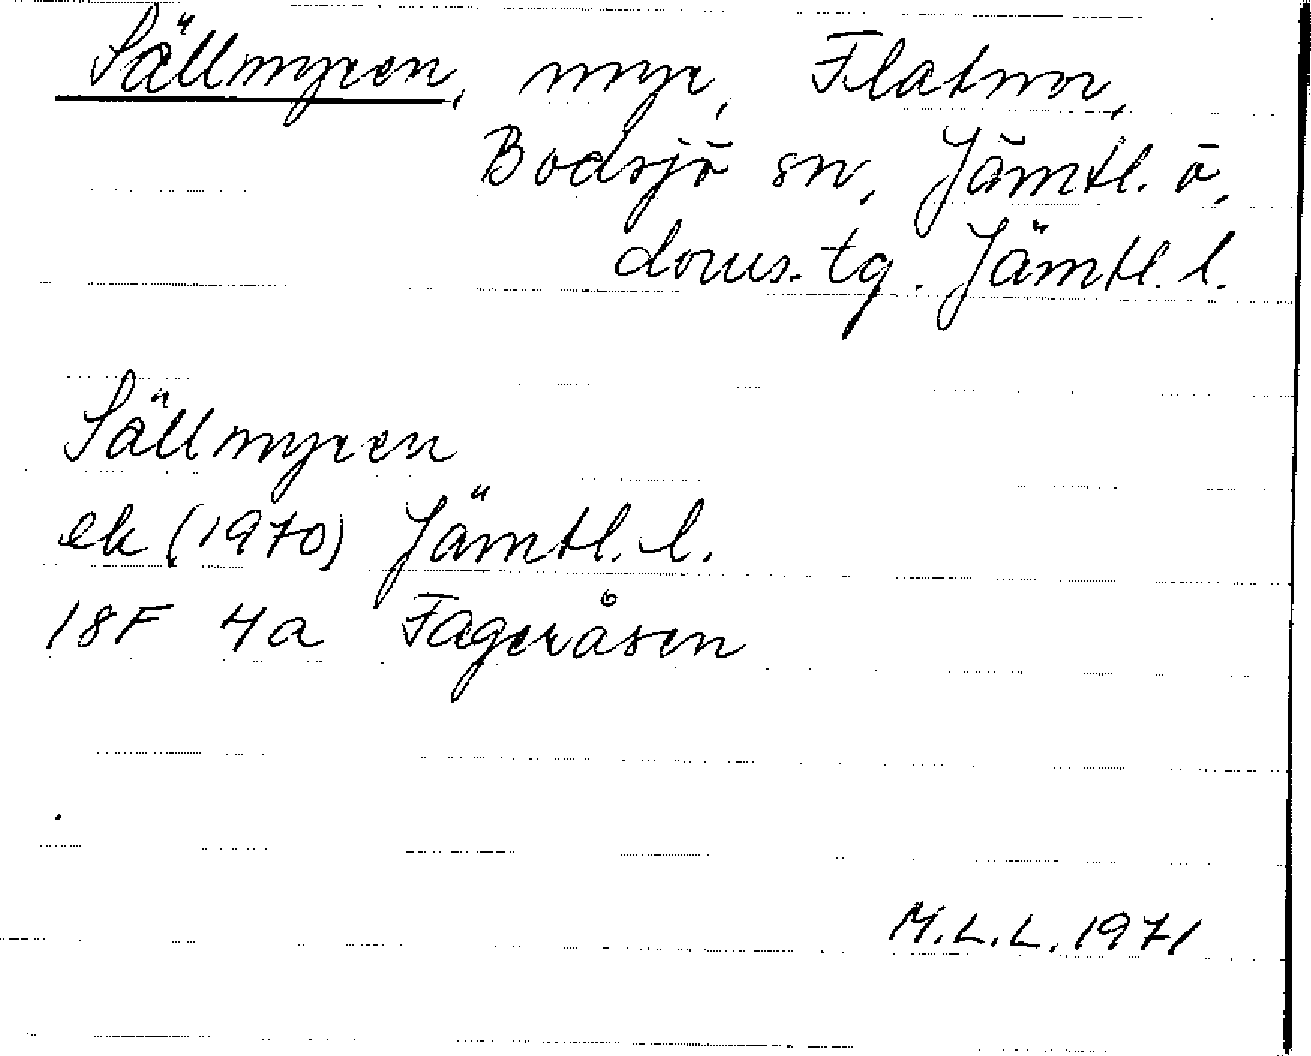 Sällmyren, myr, Flatnor,
Bodsjö sn, Jämtl. ö,
doms. tg. Jämtl. l.
Sällmyren
ek (1970) Jämtl. l.
18F 4a Fageråsen
M.L.L. 1971